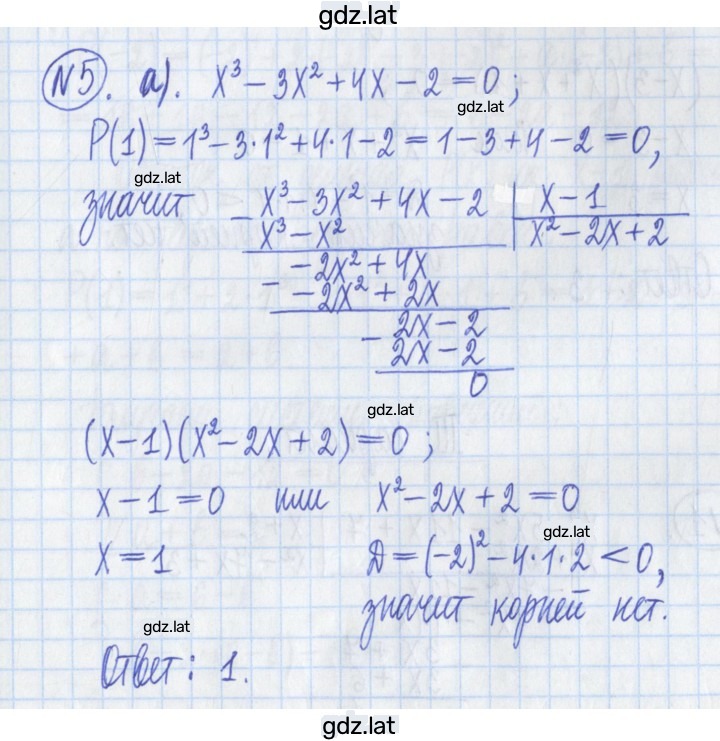 gdz.lat
N5. а). x³ − 3x² + 4x − 2 = 0;
gdz.lat
P(1) = 1³ − 3·1² + 4·1 − 2 = 1 − 3 + 4 − 2 = 0,
gdz.lat
значит − x³ − 3x² + 4x − 2 | x − 1
x³ − x² | x² − 2x + 2
− −2x² + 4x
−2x² + 2x
− 2x − 2
2x − 2
0
gdz.lat
(x − 1)(x² − 2x + 2) = 0;
x − 1 = 0 или x² − 2x + 2 = 0
gdz.lat
x = 1 Д = (−2)² − 4·1·2 < 0,
значит корней нет.
gdz.lat
Ответ: 1.
gdz.lat